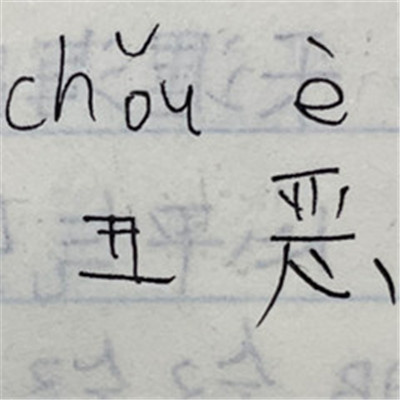 chǒu è
丑 恶